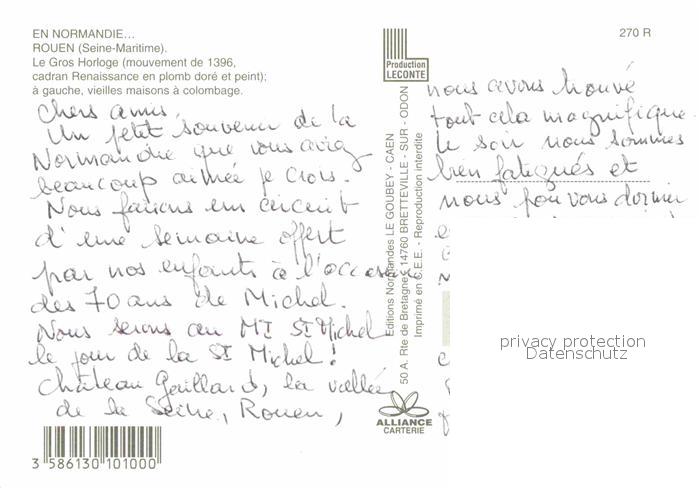 EN NORMANDIE...
ROUEN (Seine-Maritime).
Le Gros Horloge (mouvement de 1396,
cadran Renaissance en plomb doré et peint);
à gauche, vieilles maisons à colombage.
270 R
Production
LECONTE
Chers amis,
Un petit souvenir de la
Normandie que vous aviez
beaucoup aimée je crois.
Nous faisons un circuit
d'une semaine offert
par nos enfants à l'occasion
des 70 ans de Michel.
Nous serons au Mt St Michel
le jour de la St Michel !
Château Gaillard, la vallée
de la Seine, Rouen,
Editions Normandes LE GOUBEY - CAEN
50 A. Rte de Bretagne - 14760 BRETTEVILLE - SUR - ODON
Imprimé en C.E.E. - Reproduction interdite
nous avons trouvé
tout cela magnifique
le soir nous sommes
bien fatigués et
nous pouvons dormir
privacy protection
Datenschutz
ALLIANCE
CARTERIE
3 586130 101000